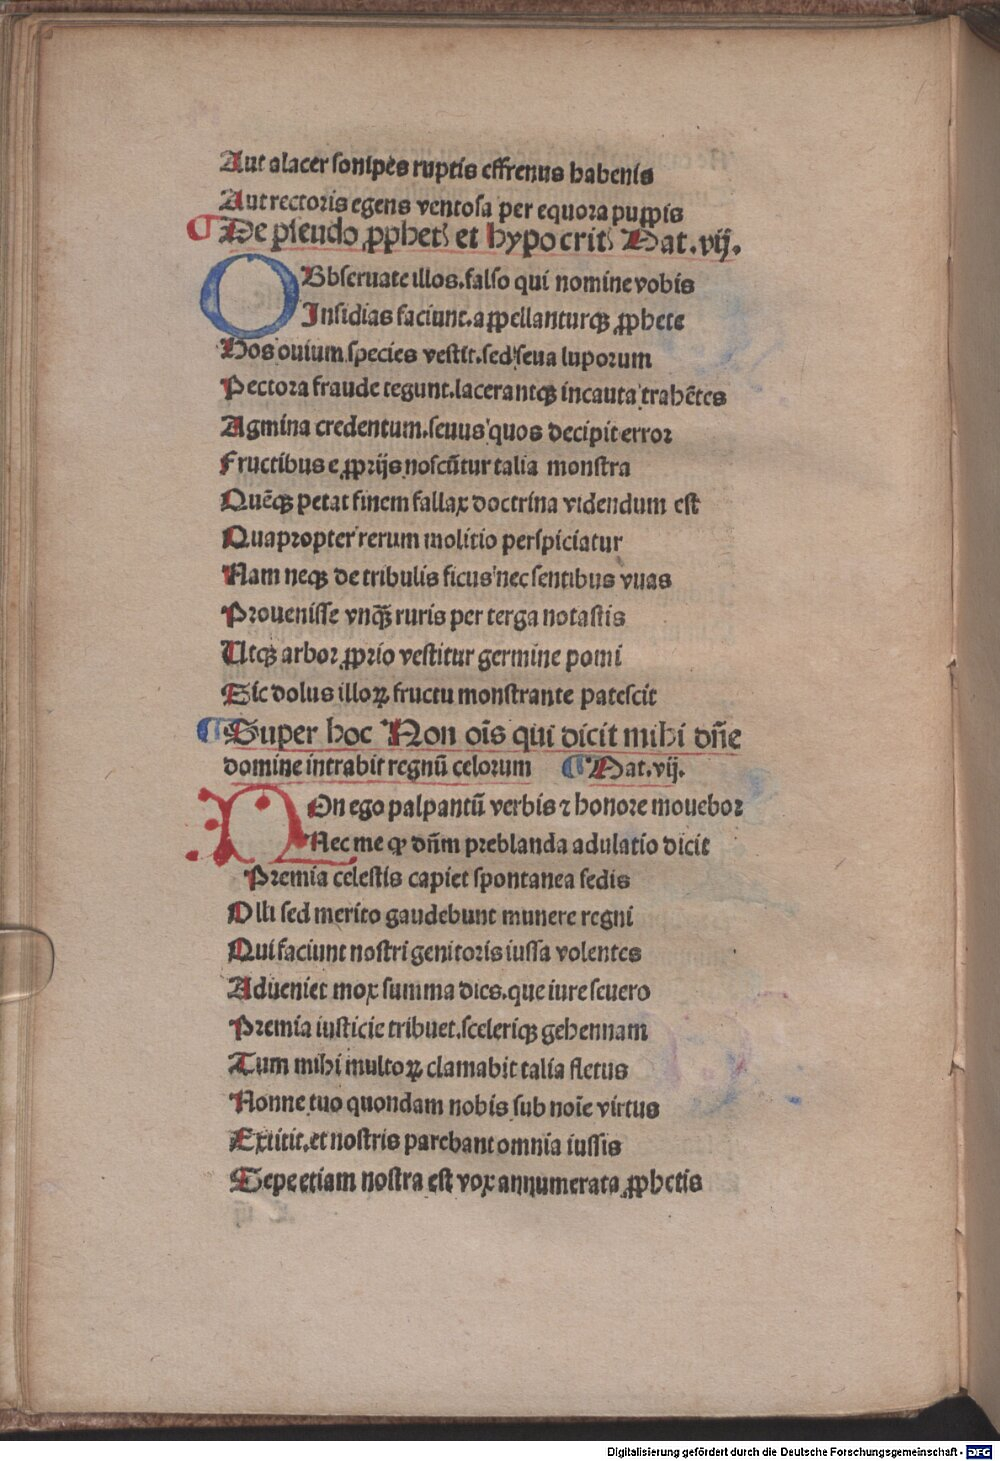 Aut alacer sonipes ruptis effrenus habenis
Aut rectoris egens ventosa per equora puppis
¶ De pseudo ꝓphetꝭ et hypocritꝭ Mat.vij.
OBbseruate illos.falso qui nomine vobis
Insidias faciunt.appellanturqꝫ ꝓphete
Hos ouium species vestit.sed seua luporum
Pectora fraude tegunt.lacerantqꝫ incauta trahẽtes
Agmina credentum.seuus quos decipit error
Fructibus e ꝓprijs noscũtur talia monstra
Quẽqꝫ petat finem fallax doctrina videndum est
Quapropter rerum molitio perspiciatur
Nam neqꝫ de tribulis ficus nec sentibus vuas
Prouenisse vnqꝫ̃ ruris per terga notastis
Utqꝫ arbor ꝓprio vestitur germine pomi
Sic dolus illoꝝ fructu monstrante patescit
¶ Super hoc Non oĩs qui dicit mihi dñe
domine intrabit regnũ celorum ¶ Mat.vij.
NOn ego palpantũ verbis ⁊ honore mouebor
Nec me ꝙ dñm preblanda adulatio dicit
Premia celestis capiet spontanea sedis
Olli sed merito gaudebunt munere regni
Qui faciunt nostri genitoris iussa volentes
Adueniet mox summa dies.que iure seuero
Premia iusticie tribuet.sceleriqꝫ gehennam
Tum mihi multoꝝ clamabit talia fletus
Nonne tuo quondam nobis sub noĩe virtus
Extitit.et nostris parebant omnia iussis
Sepe etiam nostra est vox annumerata ꝓphetis
Digitalisierung gefördert durch die Deutsche Forschungsgemeinschaft - DFG